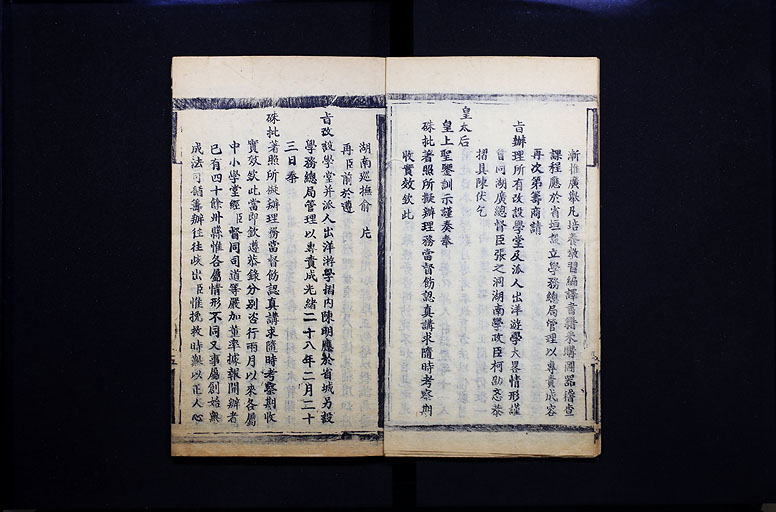 漸推廣舉凡培養教習編譯書籍采購圖器稽查
課程應於省垣設立學務總局管理以專責成容
再次第籌商請
旨辦理所有改設學堂及派人出洋遊學大畧情形謹
會同湖廣總督臣張之洞湖南學政臣柯劭忞恭
摺具陳伏乞
皇太后
皇上聖鑒訓示謹奏奉
硃批著照所擬辦理務當督飭認真講求隨時考察期
收實效欽此
湖南巡撫俞 片
再臣前於遵
旨改設學堂并派人出洋游學摺内陳明應於省城另設
學務總局管理以專責成光緒二十八年二月二十
三日奉
硃批著照所擬辦理務當督飭認真講求隨時考察期收
實效欽此當即欽遵恭錄分别咨行兩月以來各屬
中小學堂經臣督同司道等嚴加董率據報開辦者
已有四十餘州縣惟各屬情形不同又事屬創始無
成法可循籌辦往往歧出臣惟挽救時艱以正人心